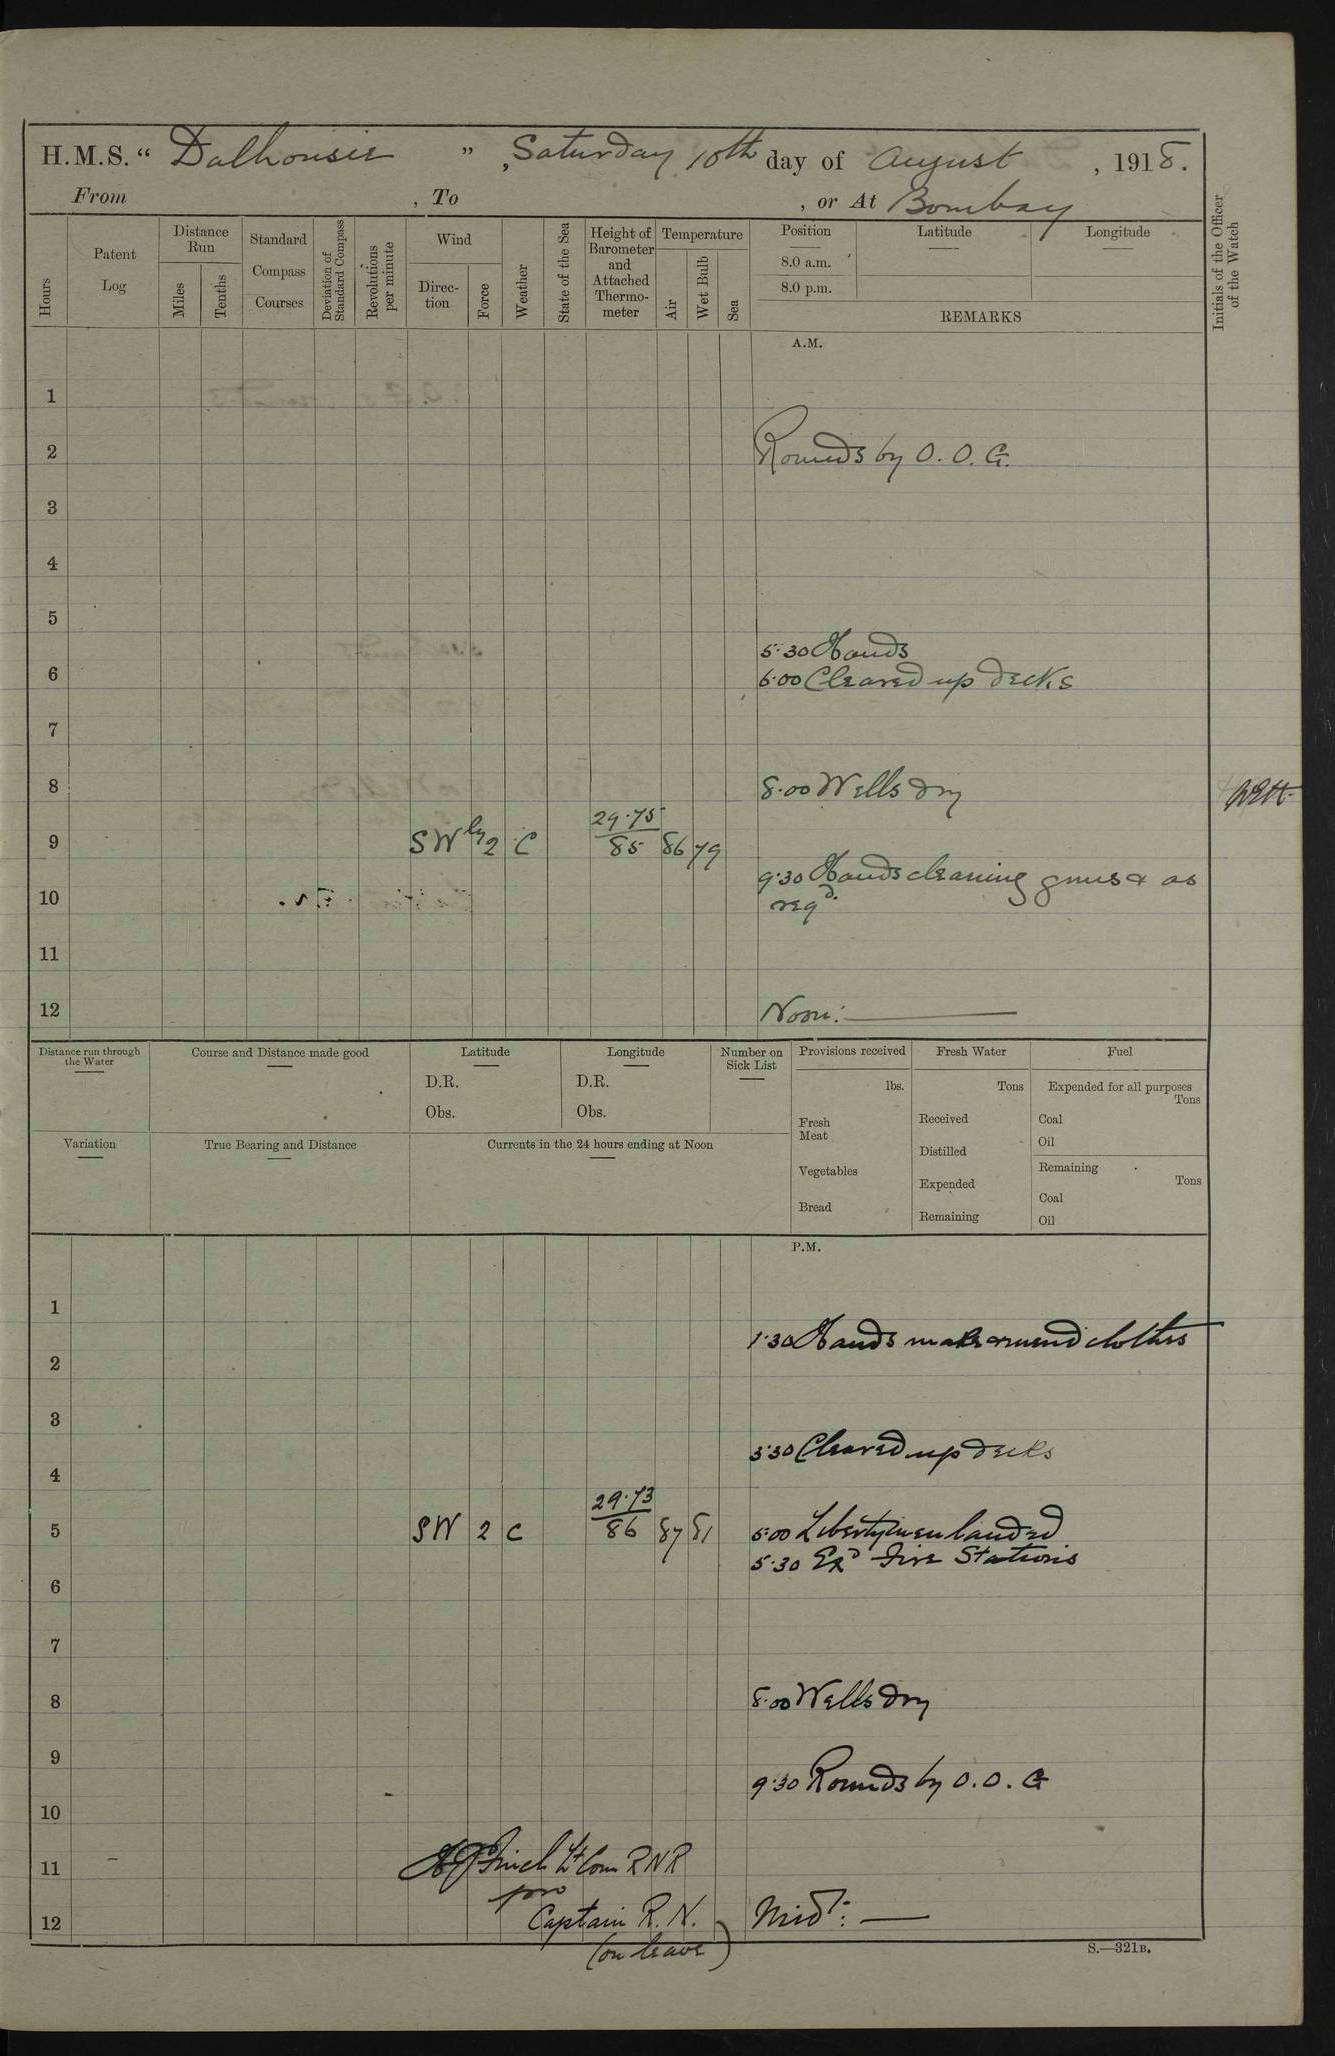 H.M.S. “ Dalhousie ” , Saturday 10th day of August , 1918.
From , To , or At Bombay
Hours
Patent Log
Distance Run
Miles
Tenths
Standard Compass Courses
Deviation of Standard Compass
Revolutions per minute
Wind
Direction
Force
Weather
State of the Sea
Height of Barometer and Attached Thermometer
Temperature
Air
Wet Bulb
Sea
Position
8.0 a.m.
8.0 p.m.
Latitude
Longitude
REMARKS
Initials of the Officer of the Watch
A.M.
1
2 Rounds by O. O. G.
3
4
5
5.30 Hands
6 6.00 Cleared up decks
7
8 8.00 Wells dry
29.75
9 SW ly 2 C 85 86 79
9.30 Hands cleaning guns & as
10 reqd.
11
12 Noon:
Distance run through the Water
Course and Distance made good
Latitude
D.R.
Obs.
Longitude
D.R.
Obs.
Number on Sick List
Provisions received
lbs.
Fresh Meat
Vegetables
Bread
Fresh Water
Tons
Received
Distilled
Expended
Remaining
Fuel
Expended for all purposes
Tons
Coal
Oil
Remaining
Tons
Coal
Oil
Variation
True Bearing and Distance
Currents in the 24 hours ending at Noon
P.M.
1
1.30 Hands make & mend clothes
2
3
3.30 Cleared up decks
4
29.73
5 SW 2 C 86 87 81 5.00 Libertymen landed
5.30 Exd Fire Stations
6
7
8 8.00 Wells dry
9
9.30 Rounds by O. O. G
10
11 Finch Lt Com RNR
pro
12 Captain R. N. Midt:
(on leave)
S.—321B.